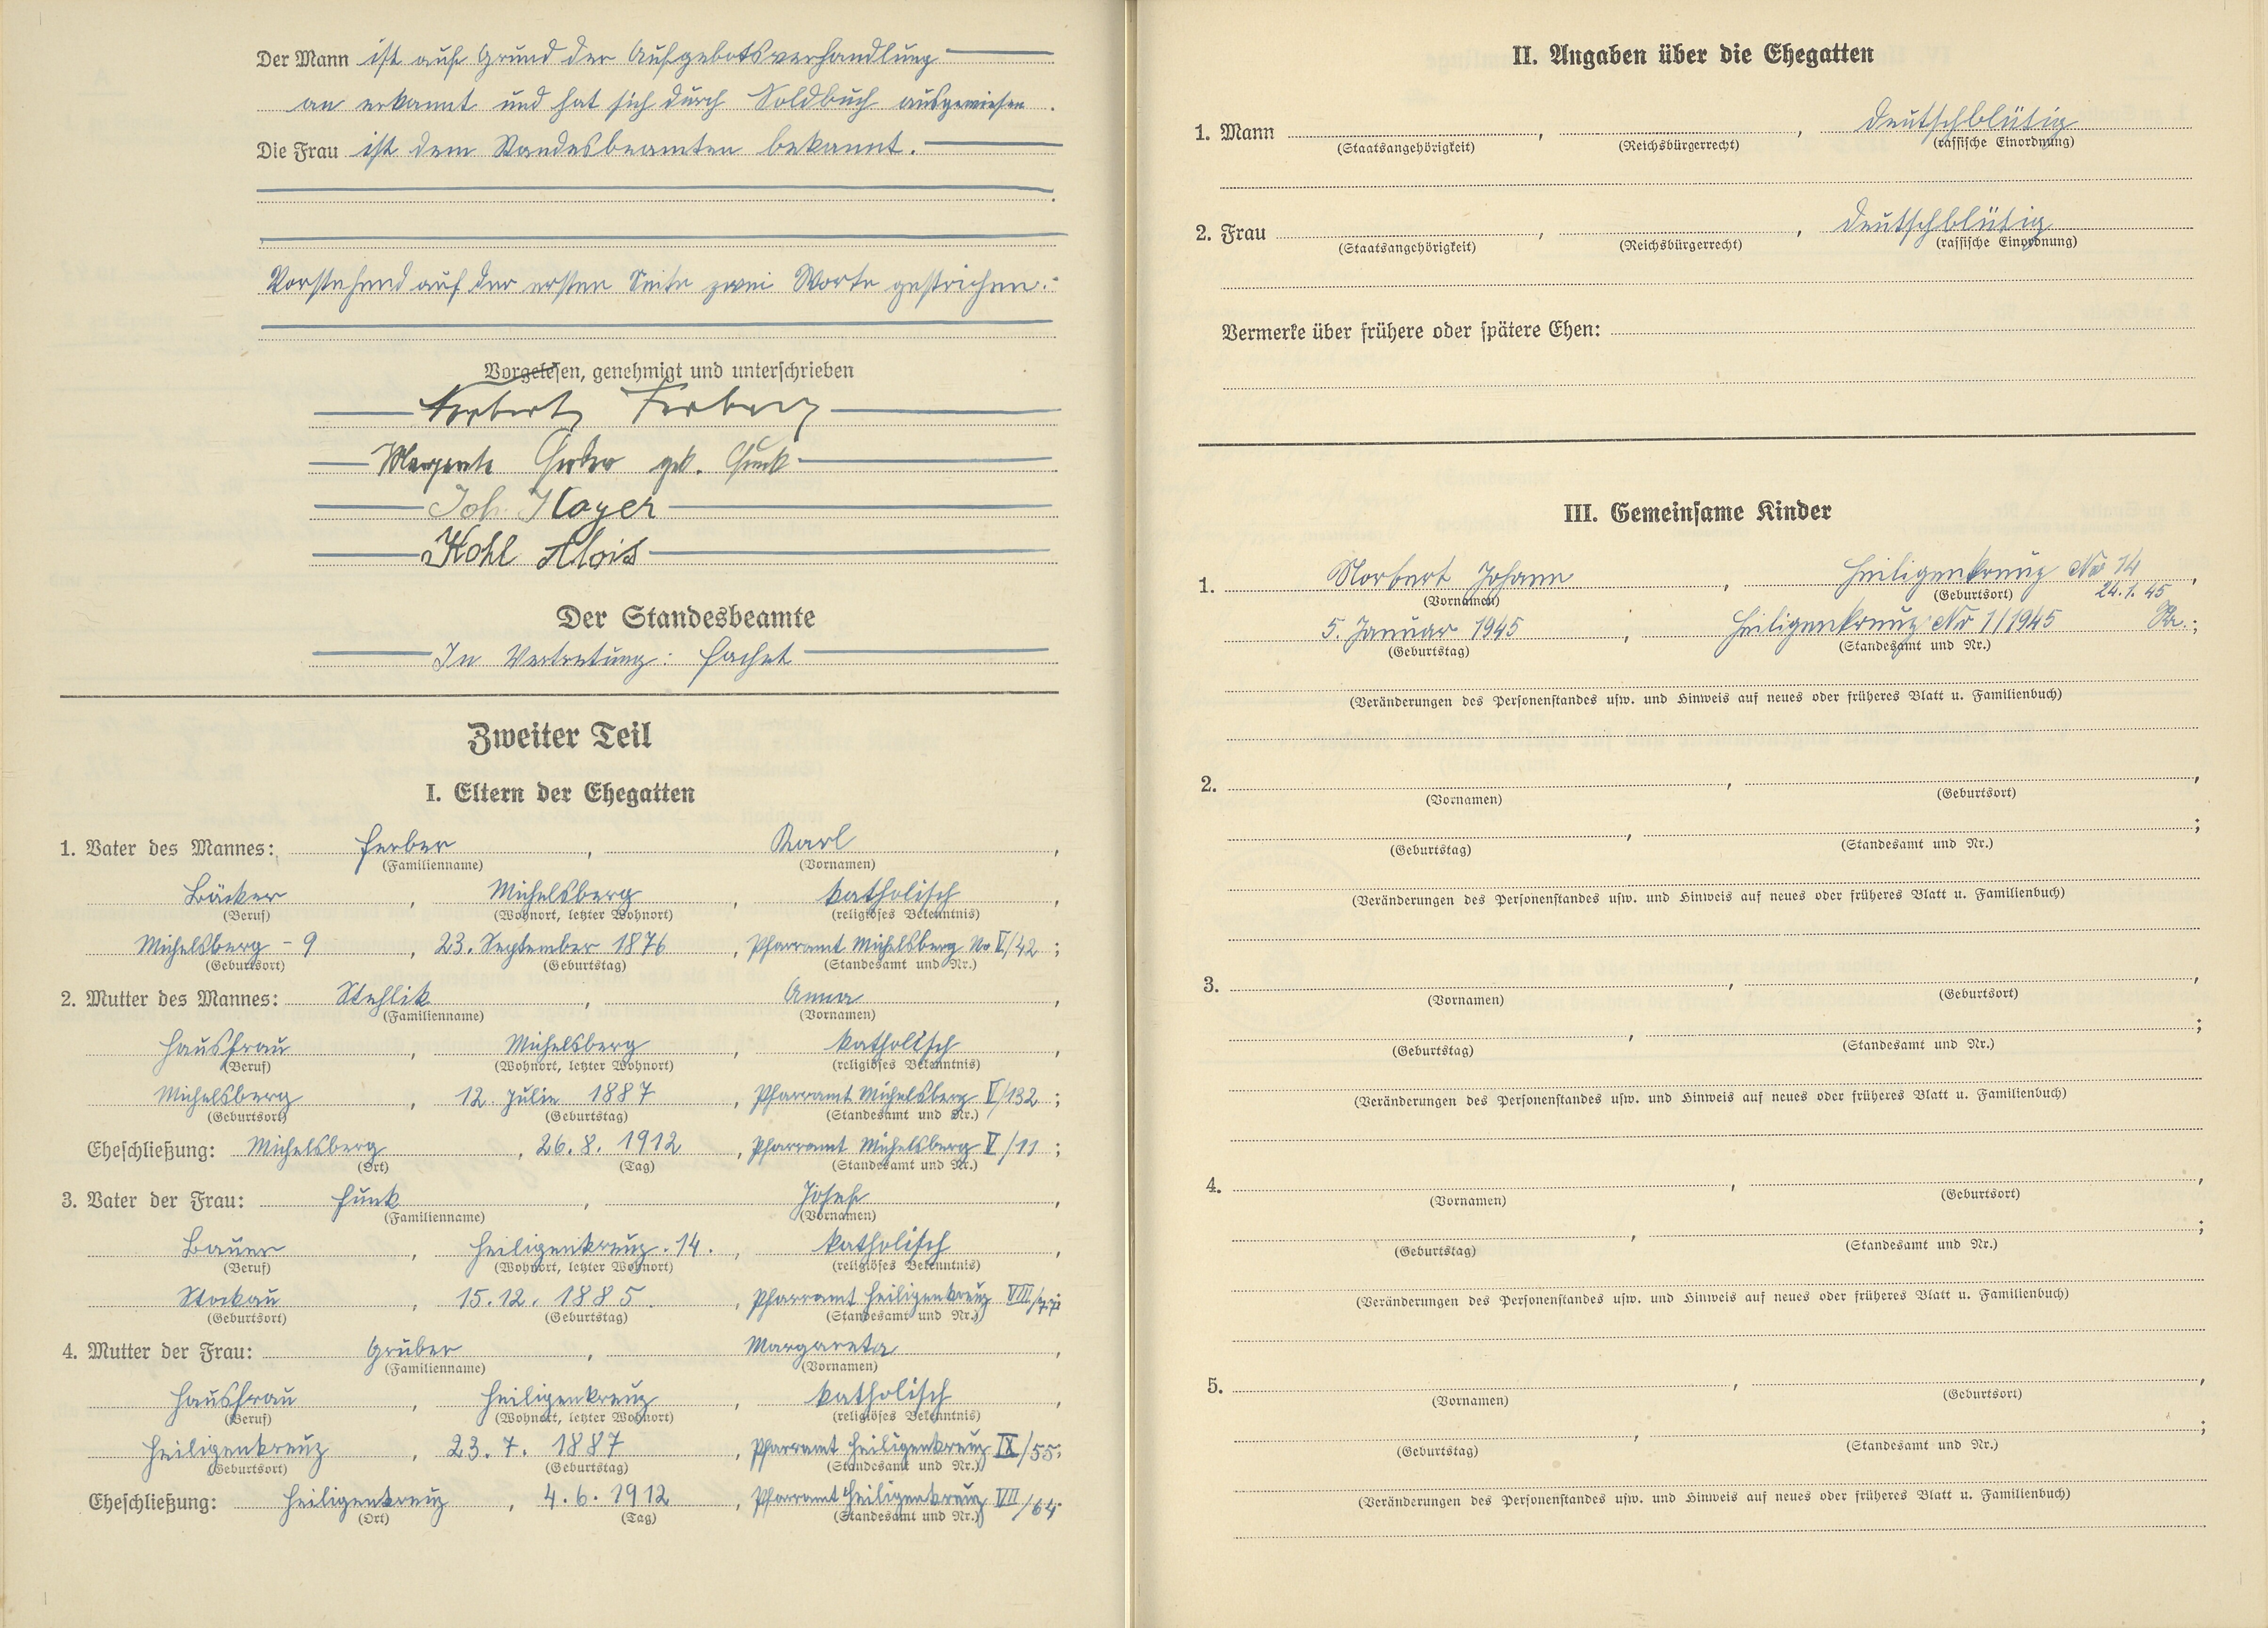 Der Mann ist auf Grund der Aufgebotsverhandlung
an erkannt und hat sich durch Soldbuch ausgewiesen.
Die Frau ist dem Standesbeamten bekannt.
Vorstehend auf der ersten Seite zwei Worte gestrichen.
Vorgelesen, genehmigt und unterschrieben
Norbert Ferber
Margareta Ferber geb. Funk
Joh. Hoyer
Kohl Alois
Der Standesbeamte
In Vertretung:
Zweiter Teil
I. Eltern der Ehegatten
1. Vater des Mannes: Ferber, Karl,
(Familienname) (Vornamen)
Bäcker, Michelsberg, katholisch,
(Beruf) (Wohnort, letzter Wohnort) (religiöses Bekenntnis)
Michelsberg - 9, 23. September 1876, Pfarramt Michelsberg No V/42;
(Geburtsort) (Geburtstag) (Standesamt und Nr.)
2. Mutter des Mannes: Stehlik, Anna,
(Familienname) (Vornamen)
Hausfrau, Michelsberg, katholisch,
(Beruf) (Wohnort, letzter Wohnort) (religiöses Bekenntnis)
Michelsberg, 12. Julie 1887, Pfarramt Michelsberg V/132;
(Geburtsort) (Geburtstag) (Standesamt und Nr.)
Eheschließung: Michelsberg, 26.8. 1912, Pfarramt Michelsberg V/11;
(Ort) (Tag) (Standesamt und Nr.)
3. Vater der Frau: Funk, Josef,
(Familienname) (Vornamen)
Bauer, Heiligenkreuz. 14., katholisch,
(Beruf) (Wohnort, letzter Wohnort) (religiöses Bekenntnis)
Stockau, 15.12. 1885., Pfarramt Heiligenkreuz VIII/
(Geburtsort) (Geburtstag) (Standesamt und Nr.)
4. Mutter der Frau: Gruber, Margareta,
(Familienname) (Vornamen)
Hausfrau, Heiligenkreuz, katholisch,
(Beruf) (Wohnort, letzter Wohnort) (religiöses Bekenntnis)
Heiligenkreuz, 23. 7. 1887, Pfarramt Heiligenkreuz IX/55;
(Geburtsort) (Geburtstag) (Standesamt und Nr.)
Eheschließung: Heiligenkreuz, 4. 6. 1912, Pfarramt Heiligenkreuz VII/64
(Ort) (Tag) (Standesamt und Nr.)
II. Angaben über die Ehegatten
1. Mann , , deutschblütig
(Staatsangehörigkeit) (Reichsbürgerrecht) (rassische Einordnung)
2. Frau , , deutschblütig
(Staatsangehörigkeit) (Reichsbürgerrecht) (rassische Einordnung)
Vermerke über frühere oder spätere Ehen:
III. Gemeinsame Kinder
1. Norbert Johann, Heiligenkreuz No 14,
(Vornamen) (Geburtsort) 24.1.45
5. Januar 1945, Heiligenkreuz No 1/1945;
(Geburtstag) (Standesamt und Nr.)
(Veränderungen des Personenstandes usw. und Hinweis auf neues oder früheres Blatt u. Familienbuch)
2. , ,
(Vornamen) (Geburtsort)
, ;
(Geburtstag) (Standesamt und Nr.)
(Veränderungen des Personenstandes usw. und Hinweis auf neues oder früheres Blatt u. Familienbuch)
3. , ,
(Vornamen) (Geburtsort)
, ;
(Geburtstag) (Standesamt und Nr.)
(Veränderungen des Personenstandes usw. und Hinweis auf neues oder früheres Blatt u. Familienbuch)
4. , ,
(Vornamen) (Geburtsort)
, ;
(Geburtstag) (Standesamt und Nr.)
(Veränderungen des Personenstandes usw. und Hinweis auf neues oder früheres Blatt u. Familienbuch)
5. , ,
(Vornamen) (Geburtsort)
, ;
(Geburtstag) (Standesamt und Nr.)
(Veränderungen des Personenstandes usw. und Hinweis auf neues oder früheres Blatt u. Familienbuch)